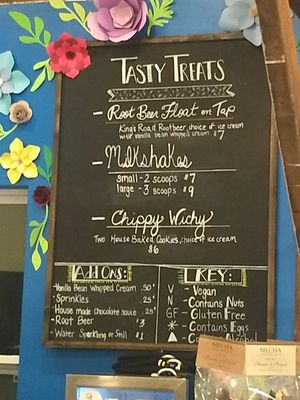 TASTY TREATS
- Root Beer Float on Tap
King's Road Rootbeer, choice of ice cream
with vanilla bean whipped cream $7
- Milkshakes
small - 2 scoops $7
large - 3 scoops $9
- Chippy Wichy
Two House Baked Cookies, choice of ice cream
$6
Add Ons:
- Vanilla Bean Whipped Cream .50¢
- Sprinkles .25¢
- House made chocolate sauce .25¢
- Root Beer $3
- Water Sparkling or Still $1
KEY:
V - Vegan
N - Contains Nuts
GF - Gluten Free
* - Contains Eggs
- Contains Alcohol
MECHA
MECHA